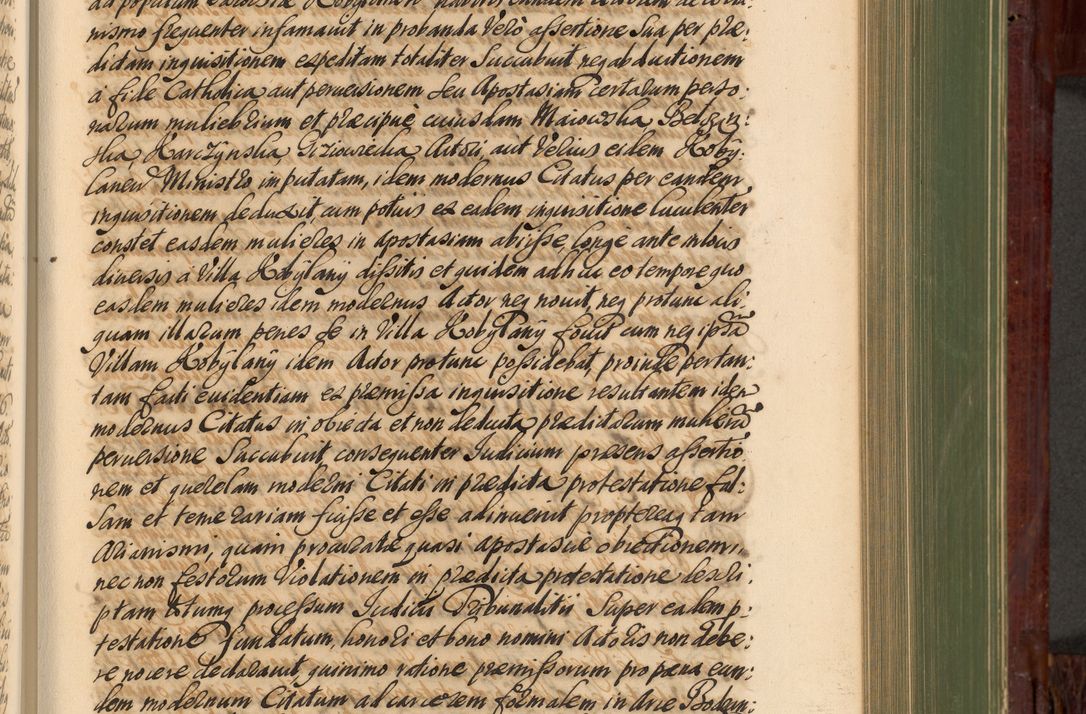 nismo frequenter infamavit in probanda vero assertione sua per præ:
dictam inquisitionem expeditam totaliter succubuit neq abductionem
a fide Catholica aut perversionem seu Apostasiam certarum perso:
narum muliebrium et præcipuè cuiusdam Maiowska
ska Karczynska Actori aut verius eidem Koby:
Ministro imputatam, idem modernus Citatus per eandem
inquisitionem deduxit, cum potius ex eadem inquisitione luculenter
constet easdem mulieres in Apostasiam abiisse longè ante in locis
diversis a Villa Kobylany dissitis et quidem adhuc eo tempore quo
easdem mulieres idem modernus Actor neq novit neq protunc ali:
quam illarum penes se in Villa Kobylany fovit cum neq ipsam
Villam Kobylany idem Actor protunc possidebat proinde per tan:
tam facti evidentiam ex præmissa inquisitione resultantem idem
modernus Citatus in obiecta et non deducta prædictarum mulierum
perversione succubuit consequenter Iudicium præsens assertio:
nem et querelam moderni Citati in prædicta protestatione fal:
sam et temerariam fuisse et esse adinvenit proptereaq tam
Arianismi, quam procuratæ quasi Apostasiæ obiectionem,
nec non festorum violationem in prædicta protestatione descri:
ptam totumq processum Iudicii Tribunalitii super eadem p:
testatione fundatum, honori et bono nomini Actoris non debe:
re nocere declaravit, quinimo ratione præmissorum pro pæna eun:
dem modernum Citatum ad carcerem formalem in Arce